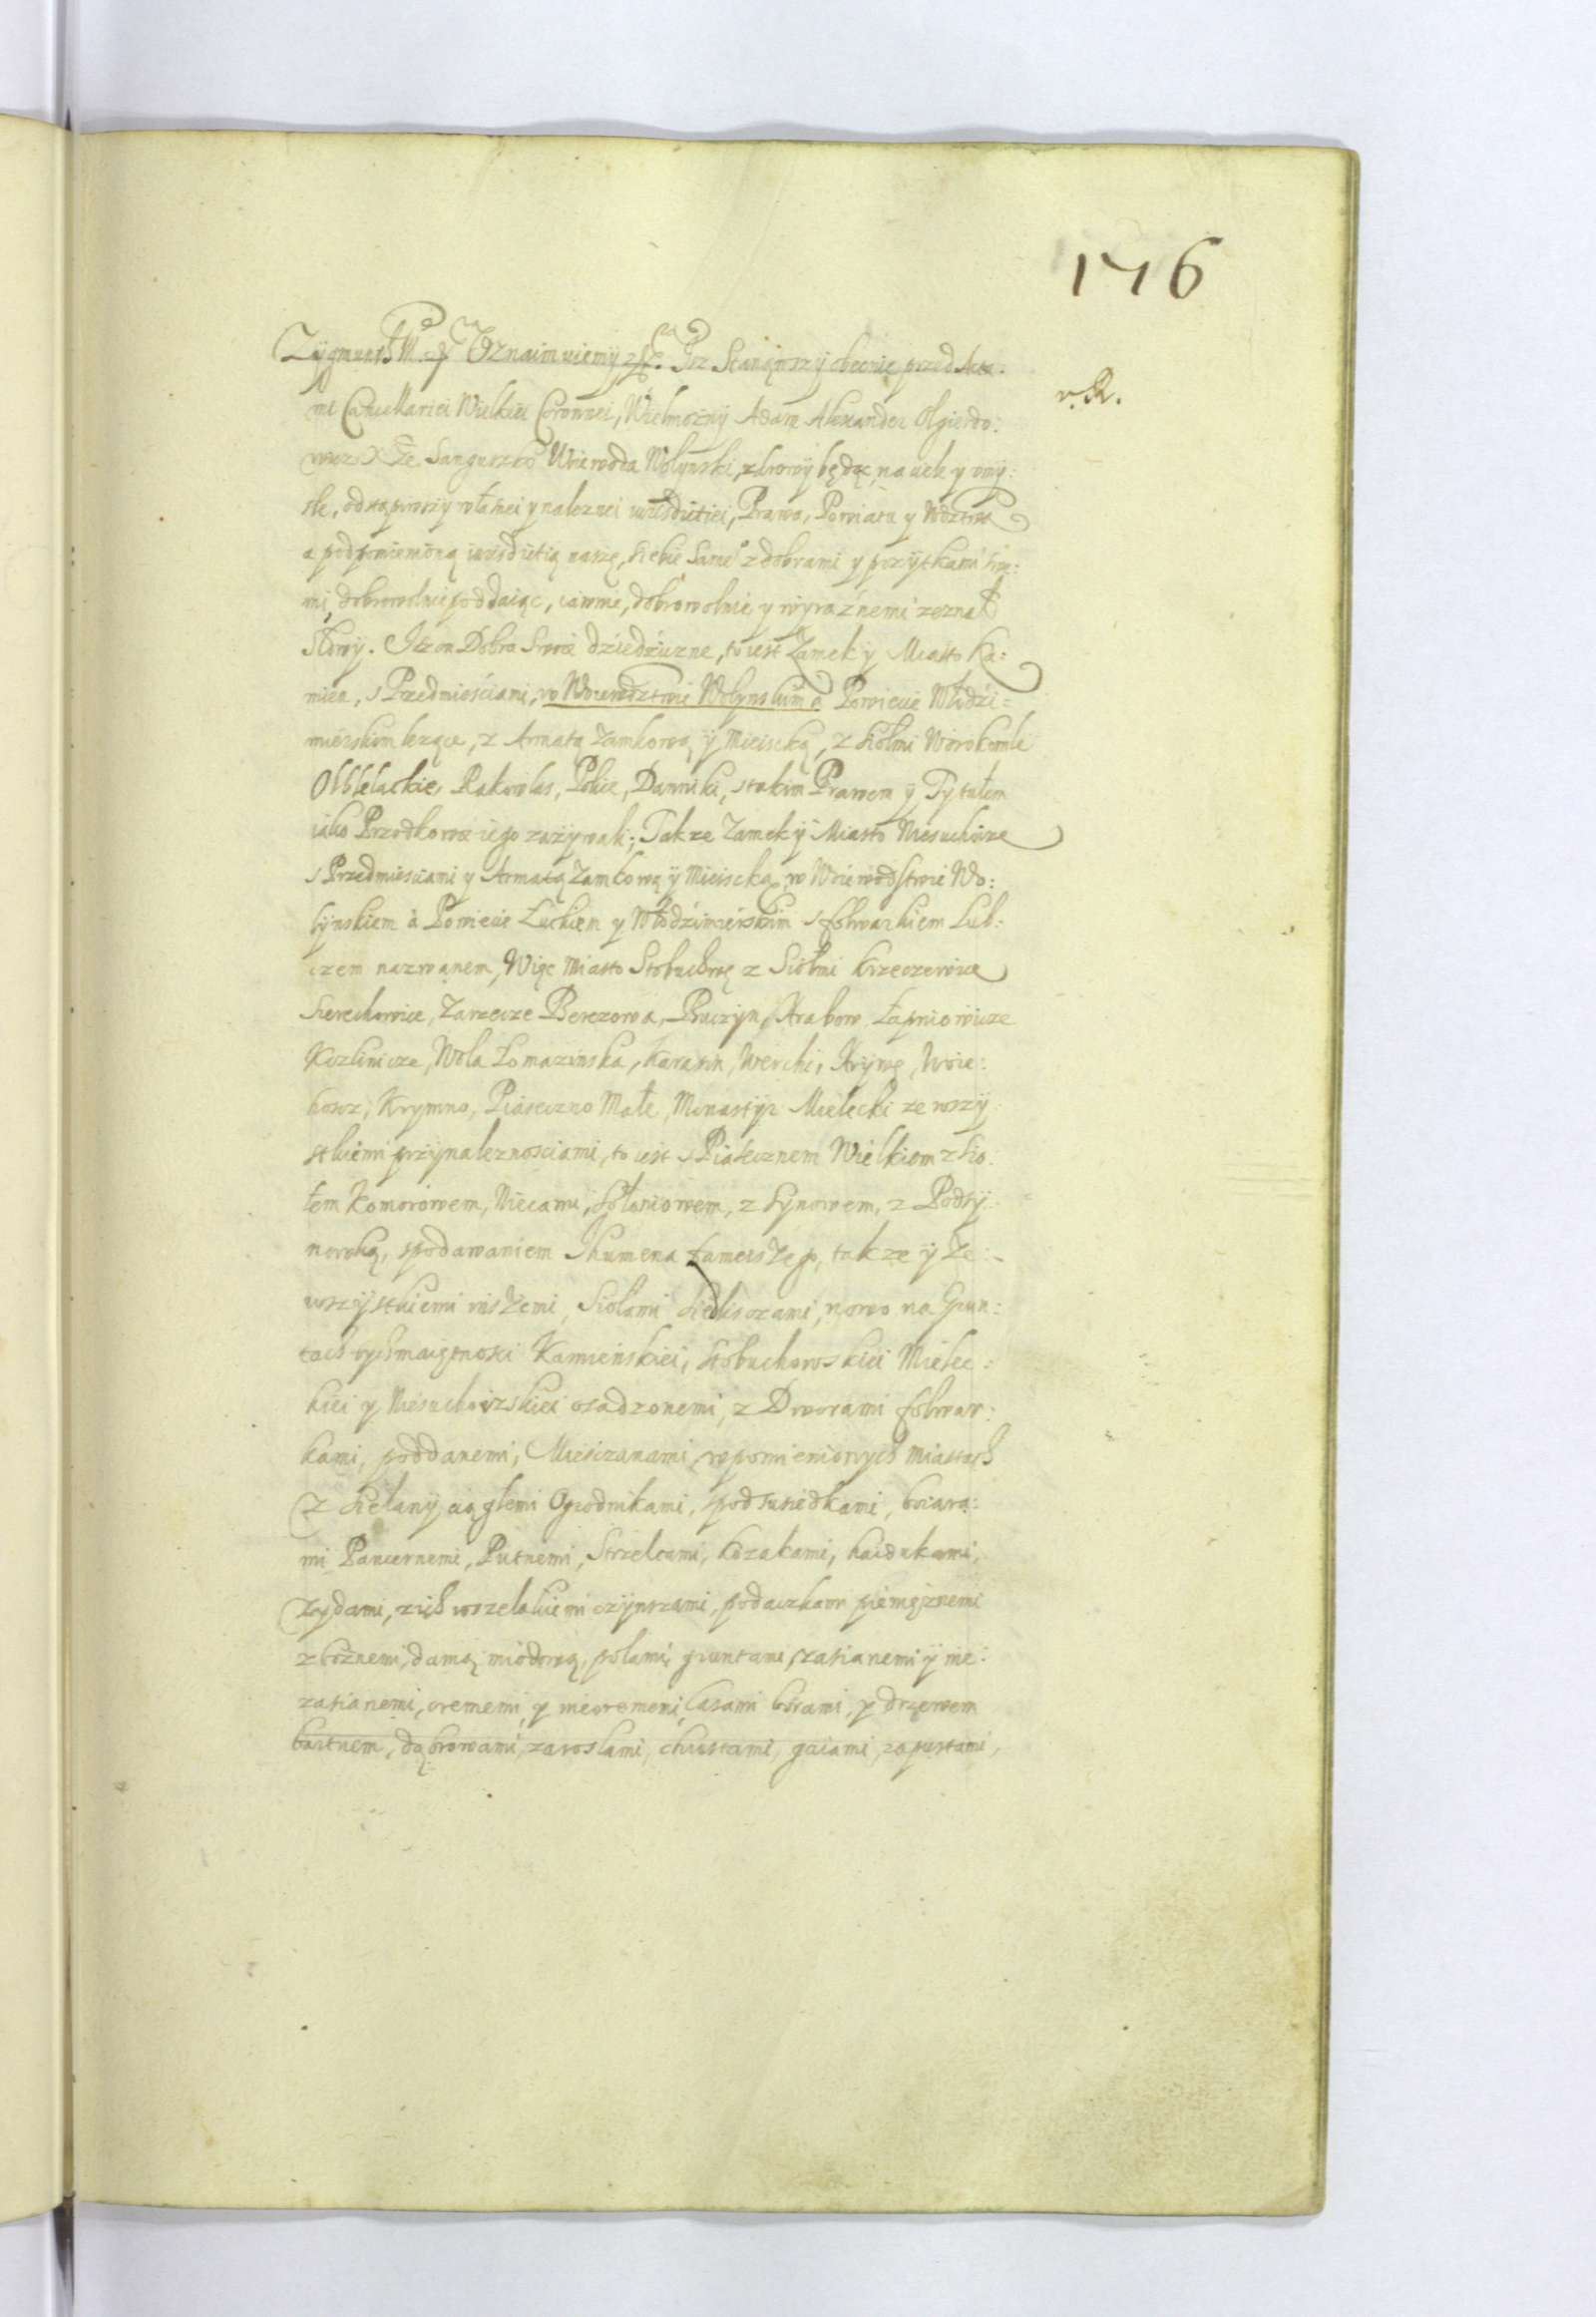 176
Zygmunt III etc. Oznaimuiemy etc. Isz Stanąwszy obecnie przed Akta:
v. R.
mi Cancellariei Wielkiei Coronnei, Wielmozny Adam Alexander Olgierdo:
wicz X Ze Sanguszko Woiewoda Wołynski, zdrowy będąc na ciele y vmy:
sle, odstąpiwszy własnei y naleznei iurisdictiei, Prawa, Powiatu y Wdztwa
a pod pomienioną iurisdictią naszę, siebie Same° z dobrami y pozytkami swe:
mi dobrowolnie poddaiąc, iawnie, dobrowolnie y wyraźnemi zeznał
Słowy. Isz on Dobra Swoie dziedziczne, to iest Zamek y Miasto Ka:
mien, s Przedmiesciami, w Woiewodztwie Wołynskim à Powiecie Włodzi=
mierskim lezące, z Armatą Zamkową y Mieiscką, z siołmi Worokomle
Olblelackie, Rakowlas, Police, Dawniki, stakim Prawem y Tytułem
iako Przodkowie iego zazywali; Takze Zamek y Miasto Niesuchoize
s Przedmiesciami y Armatą Zamkową y Mieiscką, w Woiewodstwie Wo:
łynskiem à Powiecie Łuckiem y Włodzimierskim s folwarkiem Lub:
czem nazwanem, Więc Miasto Stobuchwę z Siołmi Krzeczewice
Sierechowice, Zarzecze Berezowa, Pruczyn, Hrabow Łapniowicze
Kozlinicze, Wola Łomazinska, Karasin, Werchi, Hrywę, Woie:
hoscz, Krymno, Piaseczno Małe, Monastyr Mielecki ze wszy
stkiemi przynaleznosciami, to iest s Piasecznem Wielkiem z sio:
łem Komorowem, Niecami, Sołowiowem, z Synowem, z Podsy
nowką, spodawaniem Ihumena tameisZego, takze y Ze:
wszystkiemi inszemi, Siołami Siedliscami, nowo na Grun:
tach tych maiętnosci Kamieńskiei, Stobuchowskiei Mielec:
kiei y Niesuchoizskiei osadzonemi, z Dworami folwar:
kami, poddanemi, Miesczanami, w pomienionych Miastach
z Sielany ciągłemi Ogrodnikami, podsusiedkami, boiara:
mi Pancernemi, Putnemi, Strzelcami, Kozakami, haidukami,
Zydami, z ich wszelakiemi czynszami, podaczkami pieniężnemi
zboznemi, danią miodową, polami, gruntami, zasianemi y nie:
zasianemi, oremeni y nieoremeni, lasami borami, y drzewem
bartnem, dąbrowami, zaroslami, chrustami, gaiami, zapustami,